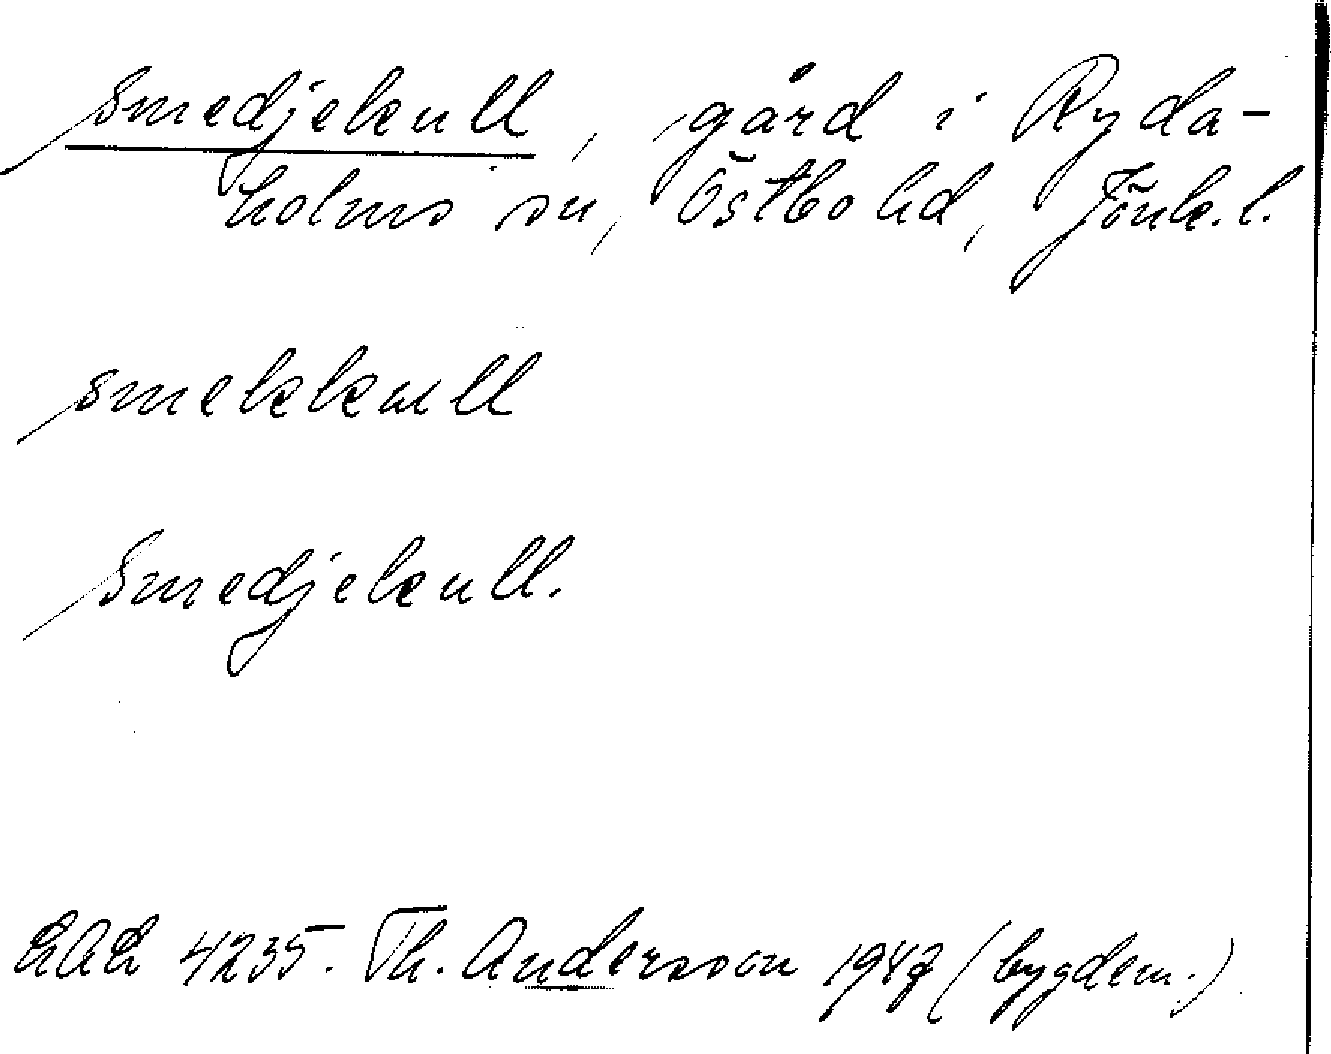 Smedjekull, gård i Ryda-
holms sn, Östbo hd, Jönk. l.
smekkull
Smedjekull.
LAL 4235. Th. Anderson 1947 (bygdem.)